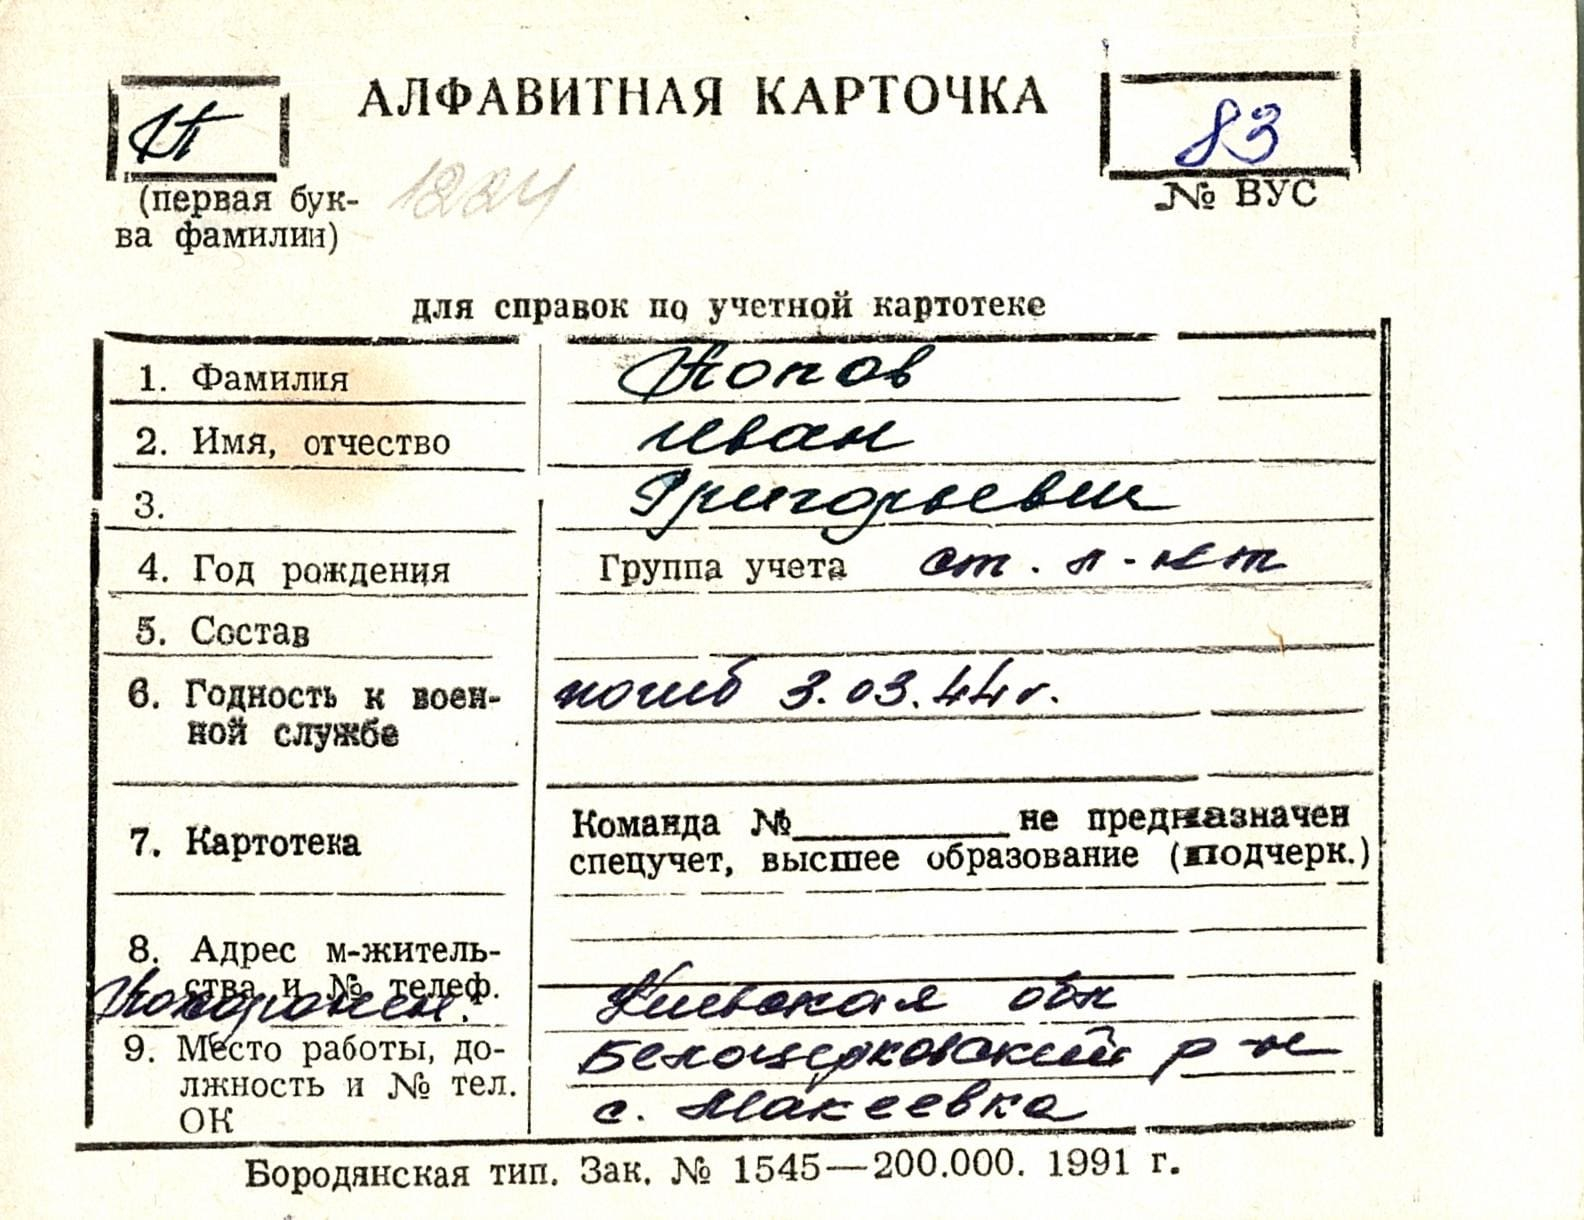 П
АЛФАВИТНАЯ КАРТОЧКА
83
(первая бук-
ва фамилии)
1224
№ ВУС
для справок по учетной картотеке
1. Фамилия Попов
2. Имя, отчество Иван
3. Григорьевич
4. Год рождения Группа учета ст. л-нт
5. Состав
6. Годность к воен-
ной службе
погиб 3.03.44г.
7. Картотека
Команда № не предназначен
спецучет, высшее образование (подчерк.)
8. Адрес м-житель-
ства и № телеф.
Похоронен: Киевская обл
9. Место работы, до-
лжность и № тел.
ОК
Белоцерковский р-н
с. Макеевка
Бородянская тип. Зак. № 1545—200.000. 1991 г.